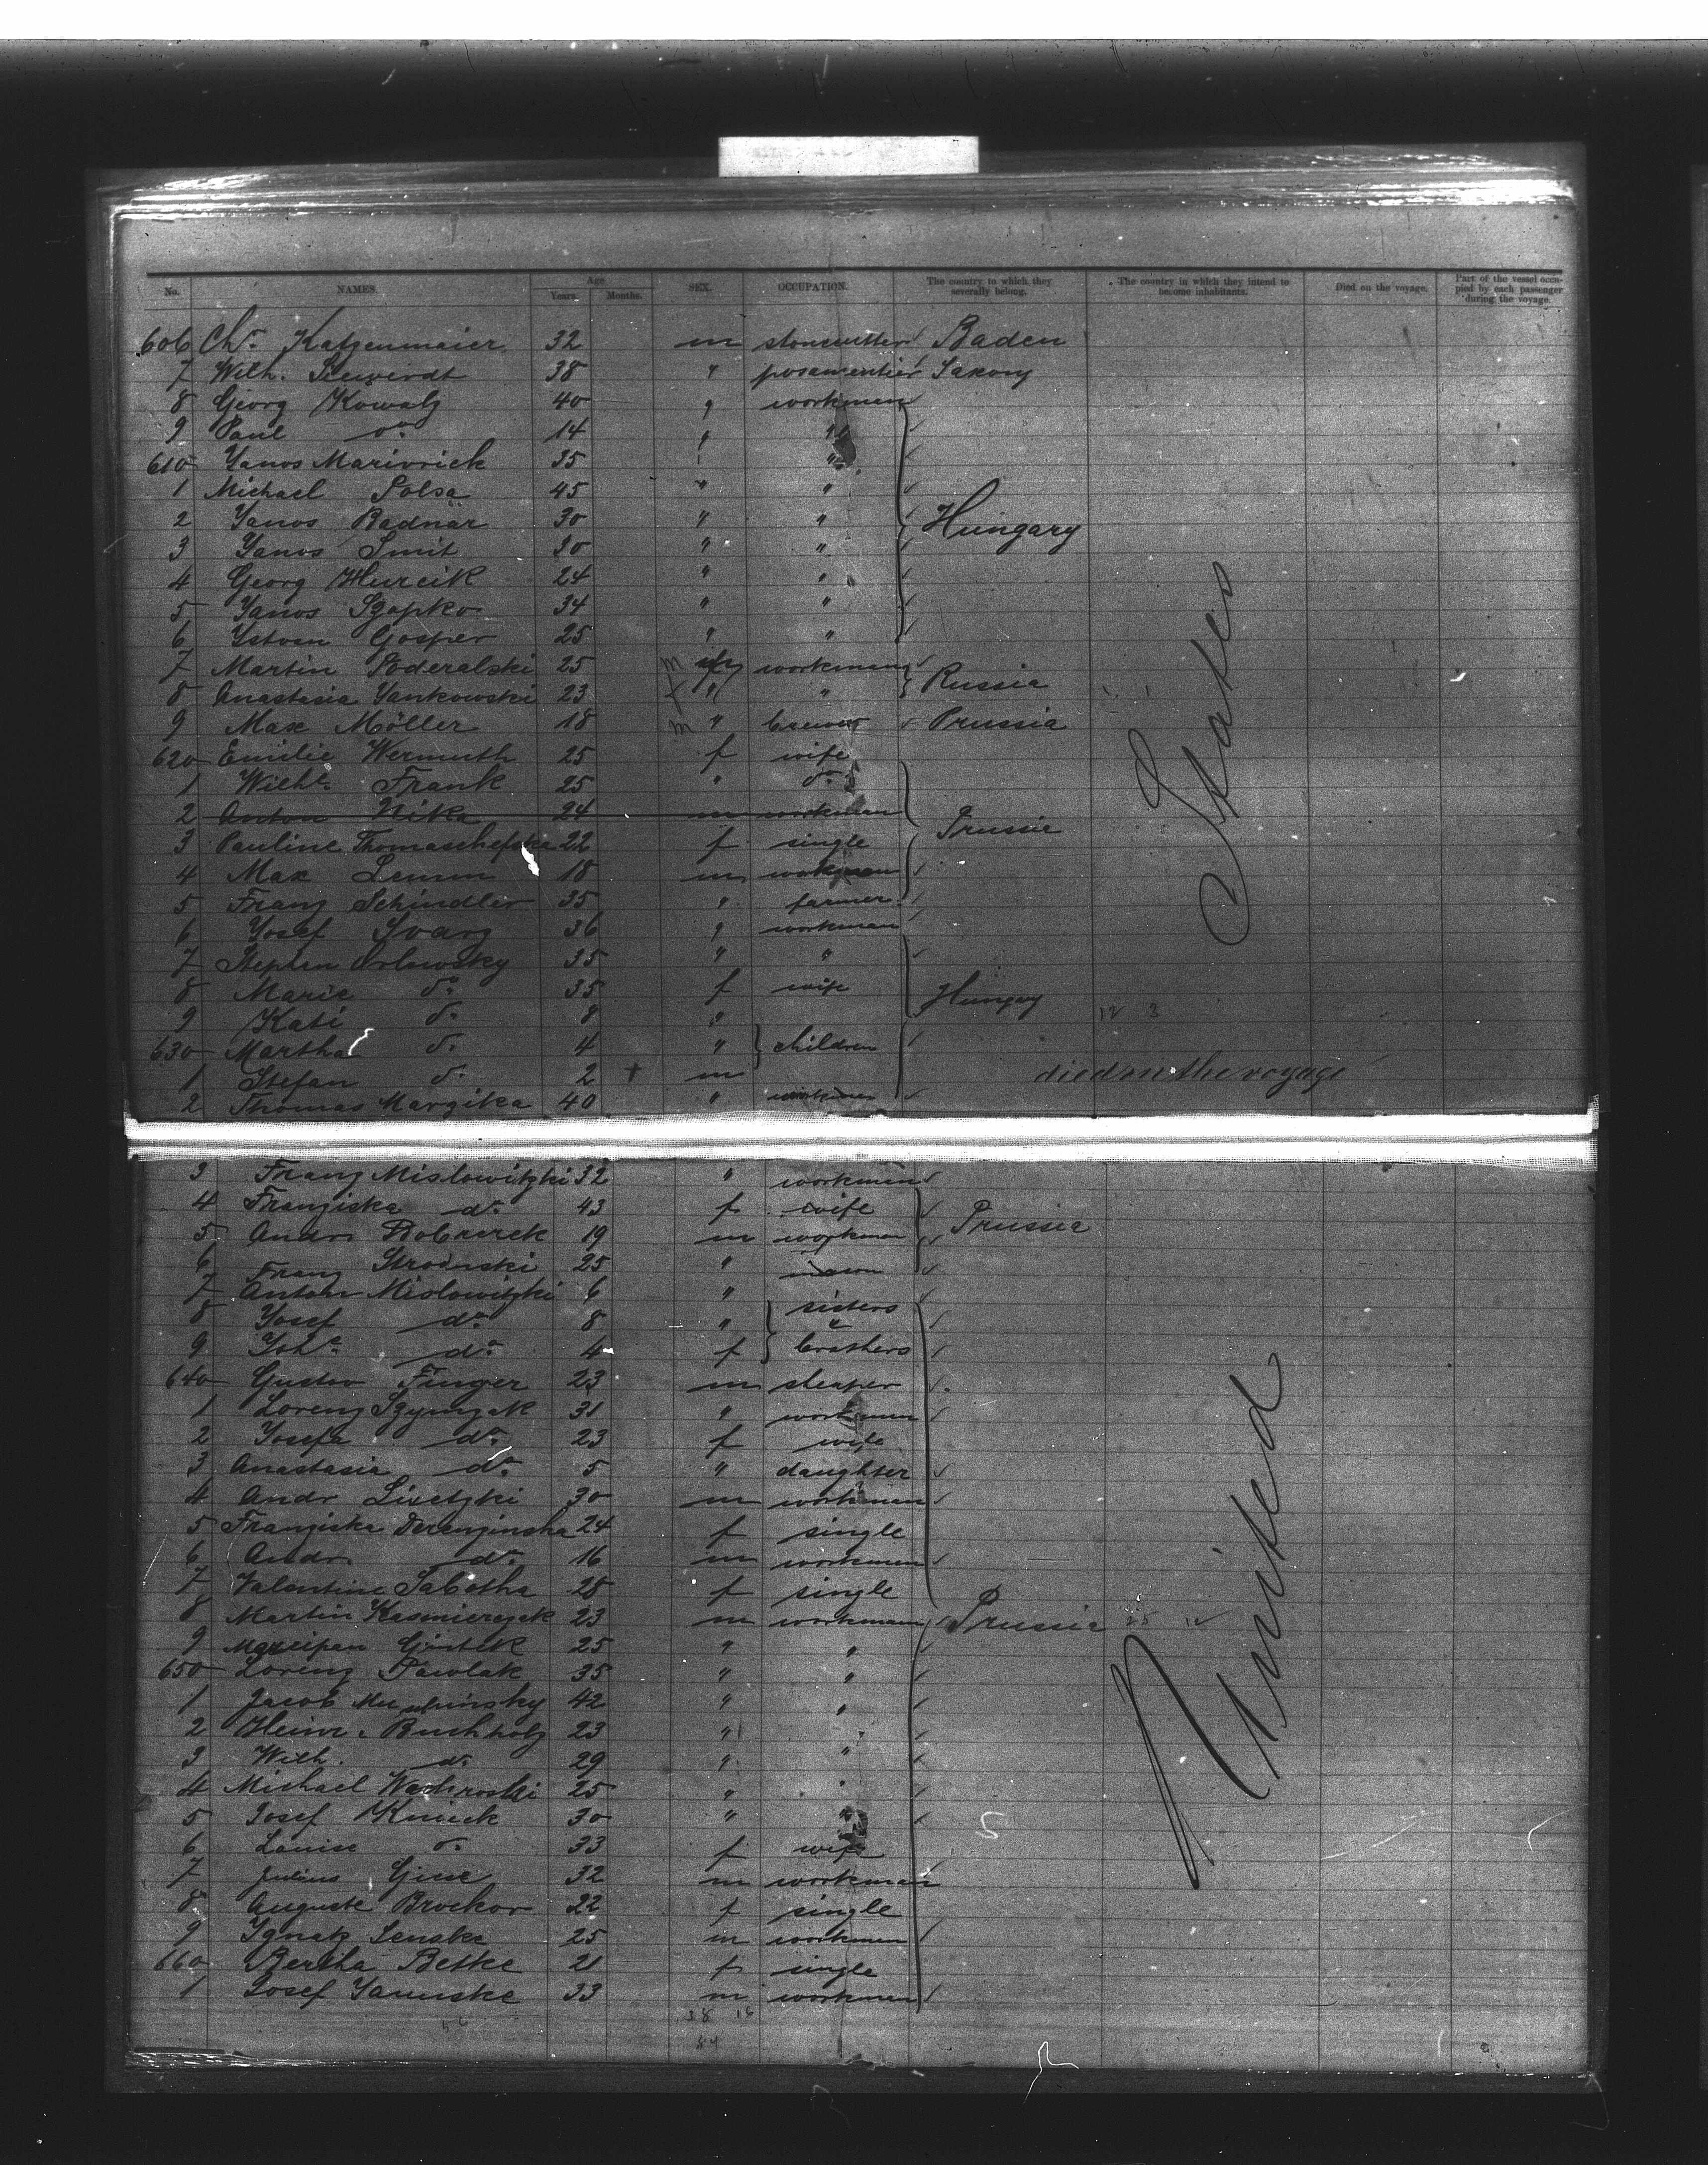 No. NAMES. Age Years. Months. SEX. OCCUPATION. The country to which they severally belong. The country in which they intend to become inhabitants. Died on the voyage. Part of the vessel occupied by each passenger during the voyage.
606 Chr. Katzenmaier 32 m stonecutter Baden
7 Wilh. Siewerdt 38 " posamentier Saxony
8 Georg Kowalz 40 " workmen
9 Paul do. 14 " "
610 Yanos Marivrick 35 " "
1 Michael Polsa 45 " "
2 Yanos Badnär 30 " " Hungary
3 Yanos Smit 30 " "
4 Georg Hurcik 24 " "
5 Yanos Szapko 34 " "
6 Ystvan Gosper 25 " "
7 Martin Poderalski 25 m workman
8 Anastasia Yankowski 23 f " " Russia
9 Max Möller 18 m " brewer Prussia
620 Emilie Wermuth 25 f wife
1 Wilhe. Frank 25 " do.
2 Anton Nika 24 m workman
3 Pauline Thomaschefska 22 f single Prussia
4 Max Lemm 18 m workman
5 Franz Schindler 35 " farmer
6 Yosef Svarz 36 " workman
7 Stephen Orlowsky 35 " "
8 Marie do. 35 f wife Hungary
9 Kati do. 8 "
630 Martha do. 4 " children
1 Stefan do. 2 + m died on the voyage
2 Thomas Margika 40 " workmen
3 Franz Mislowitzki 32 " workmen
4 Franziska do. 43 f wife Prussia
5 Andr. Dobrzrek 19 m workmen
6 Franz Strodnski 25 " mason
7 Anton Mislowitzki 6 "
8 Yosef do. 8 " sisters &
9 Joh. do. 4 f brothers
640 Gustav Finger 23 m
1 Lorenz Szymzak 31 " workmen
2 Josefa do. 23 f wife
3 Anastasia do. 5 " daughter
4 Andr Lixetzki 30 m workman
5 Franziska Derenzinska 24 f single
6 Andr. do. 16 m workmen
7 Valentine Sabotha 28 f single
8 Martin Kasmierczak 23 m workman Prussia
9 25 " "
650 Lorenz Pawlak 35 " "
1 Jacob 42 " "
2 Heinr. Buchholz 23 "
3 Wilh. do. 29 " "
4 Michael 25 " "
5 Josef Kmieck 30 " "
6 Louise do. 33 f wife
7 Julius Giese 32 m workman
8 Auguste Brockov 22 f single
9 Ignatz Senske 25 m workmen
660 Bertha Betke 21 f single
1 Josef Januske 33 m workmen
38 16
United States